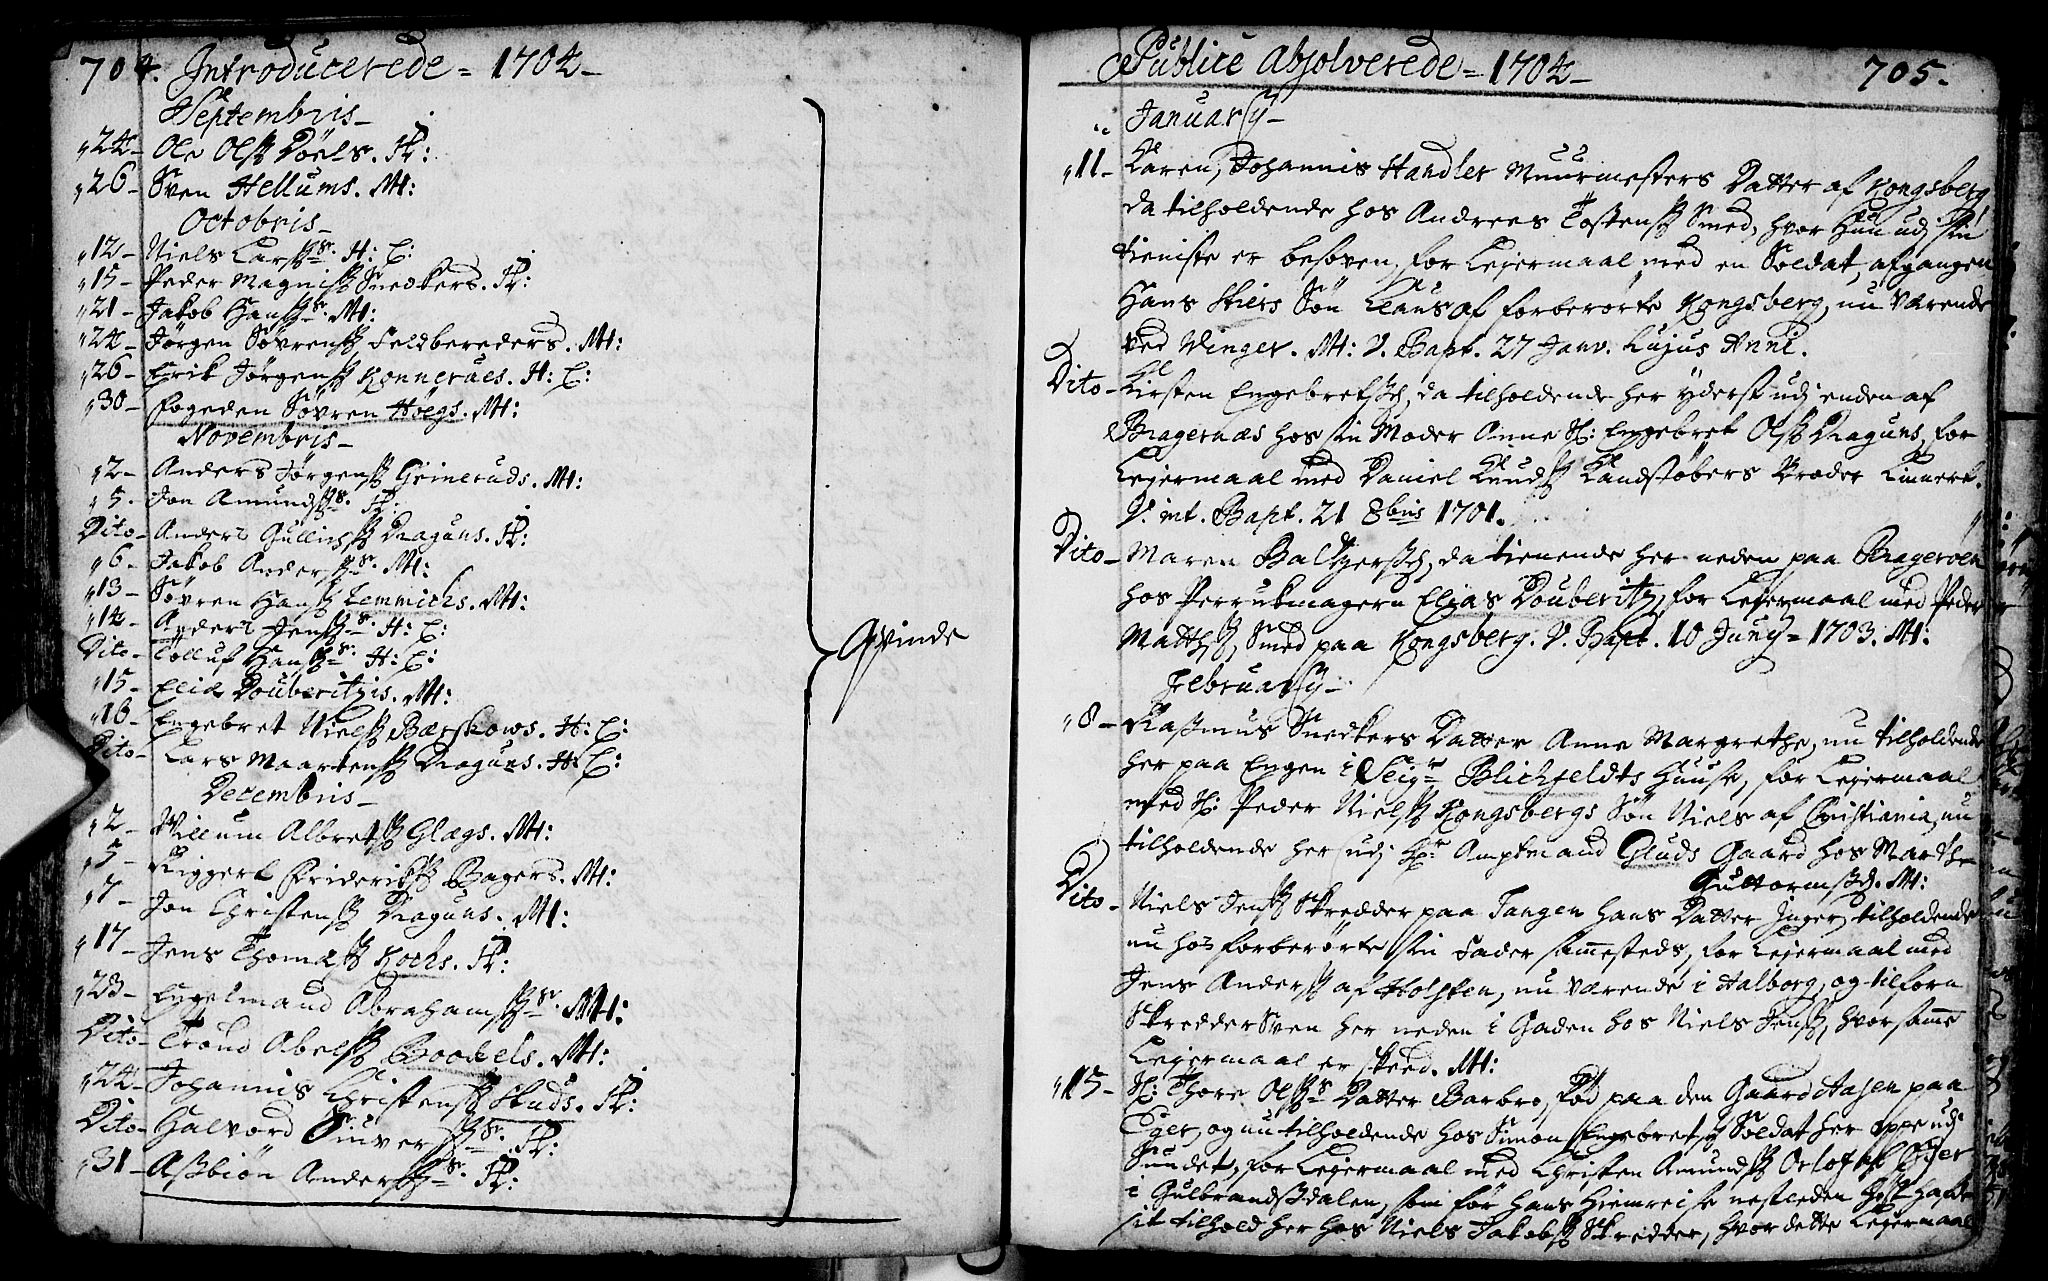 704. Introducerede = 1704 -
Septembris -
"24 - Ole Olsß Döels. H:
"26 - Sven Hellums. M:
Octobris -
"12 - Niels Larsß sr. H: C:
"15 - Peder Magnisß Snedkers. H:
"21 - Jakob Hansß sr. M:
"24 - Jörgen Sövrensß Feldbereders. M:
"26 - Erik Jörgensß Konneruds. H: C:
"30 - Fogeden Sövren Höegs. M:
Novembris -
"2 - Anders Jörgensß Geineruds. M:
"5 - Jon Amundsß sr. H:
Dito - Anders Gullichsß Draguns. H:
"6 - Jakob Andersß sr. M:
"13 - Sövren Hansß Lemmichs. M:
"14 - Anders Jensß sr. H: C:
Dito - Tolluf Hansß sr. H: C:
"15 - Elias Douberitzis. M:
"16 - Engebret Nielsß Bærskows. H: C:
Dito - Lars Maartensß Draguns. H: C:
Decembris -
"2 - Willum Albretsß Glægs. M:
"5 - Riggert Friderichsß Bagers. M:
"7 - Jon Christensß Draguns. M:
"17 - Jens Thomæsß Kochs. H:
"23 - Engelmaud Abrahamsß sr. M:
Dito - Troud Abelsß Bookels. M:
"24 - Johannis Christensß Skuds. H:
Dito - Halvord Siuversß sr. H:
"31 - Aßbiön Andersß sr. H:
Qvinde
Publice Absolverede = 1704 - 705.
Januarÿ -
"11 - Karen, Johannis Handler Muurmesters Datter af Kongsberg
da tilholdende hos Andreas Tostensß Smed, hvor hun udj sin
tieniste er besoven, for Leyermaal med en Soldat, afgangen
Hans Skiers Sön Claus af forberörte Kongsberg, nu værende
ved Winger. M: V. Bapt. 27 Janv. hujus Anni.
Dito - Kirsten Engebretsd, da tilholdende her yderst udj enden af
Bragernæs hos sin Moder Anne Sl: Engebret Olsß Draguns, for
Leyermaal med Daniel Knudsß Kandstöbers broder Linnert.
V. int. Bapt. 21 8bris 1701.
Dito - Maren Baltzersd, da tienende her neden paa Brageröen
hos Perrukmagern Elias Douberitz, for Leyermaal med Peder
Mattsß, Smed paa Kongsberg. V. Bapt. 10 Juny = 1703. M:
Februarÿ -
"8 - Raßmus Snedkers Datter Anne Margrethe, nu tilholdende
her paa Engen i Seigr Blichfeldts Huuse, for Leyermaal
med Sl: Peder Nielsß Kongsbergs Sön Niels af Christiania, nu
tilholdende her udj Hr Amptmand Gluds Gaard hos Marthe
Guttormsd. M:
Dito - Niels Jensß Skredder paa Tangen hans Datter Inger, tilholdende
nu hos forberörte sin Fader sammesteds, for Leyermaal med
Jens Andersß af Holsten, nu værende i Aalborg, og tilforn
Skredder Sven her neden i Gaden hos Niels Jensß, hvor samme
Leyermaal er skeed. M:
"15 - Sl: Thore Olsß sr Datter Barbro, föd paa den Gaard Aasen paa
Eger, og nu tilholdende hos Simon Engebretsß Soldat her oppe udj
Sundet, for Leyermaal med Christen Amundsß Orlof af Öyer
i Gulbrandsdalen, som för hans Hiemreise nestleden höst hafde
sit tilhold her hos Niels Jakobsß Skredder, hvor dette Leyermaal